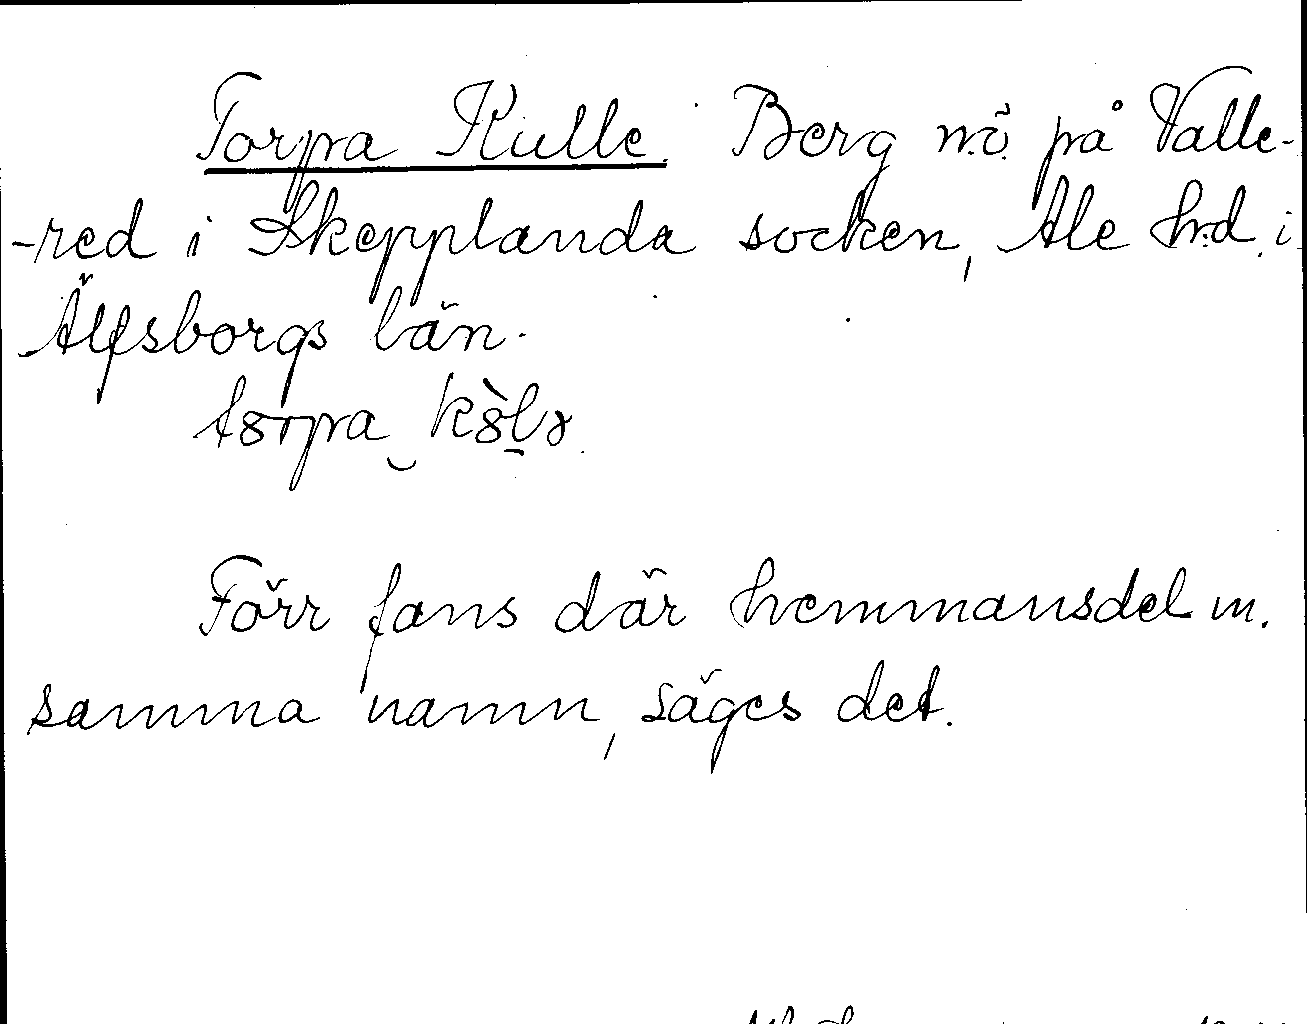 Torpa Kulle. Berg n.ö. på Valle-
-red i Skepplanda socken, Ale h:d. i
Älfsborgs län.
Förr fans där hemmansdel m.
samma namn, säges det.